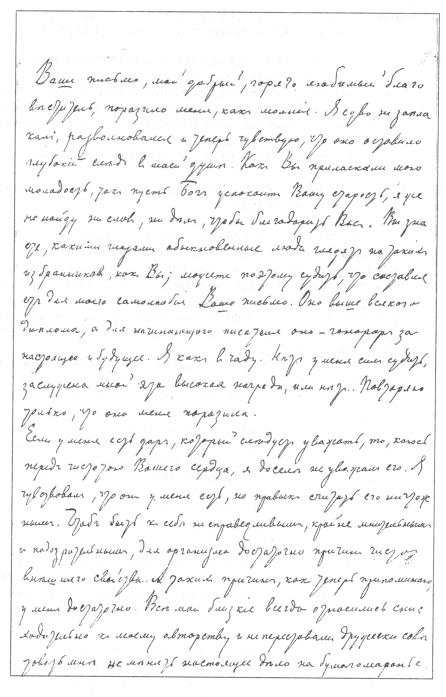 Ваше письмо, мой добрый, горячо любимый благо
вѣститель, поразило меня, какъ молнія. Я едва не запла
калъ, разволновался и теперь чувствую, что оно оставило
глубокій слѣдъ въ моей душѣ. Какъ Вы приласкали мою
молодость, такъ пусть Богъ успокоитъ Вашу старость, я же
не найду ни словъ, ни дѣлъ, чтобы благодарить Васъ. Вы зна
ете, какими глазами обыкновенные люди глядятъ на такихъ
избранниковъ, какъ Вы; можете поэтому судить, что составля
етъ для моего самолюбія Ваше письмо. Оно выше всякого
диплома, а для начинающаго писателя оно – гонораръ за
настоящее и будущее. Я какъ въ чаду. Нѣтъ у меня силъ судить,
заслужена мной эта высокая награда, или нѣтъ... Повторяю
только, что она меня поразила.
Если у меня есть даръ, который слѣдуетъ уважать, то, каюсь
передъ чистотою Вашего сердца, я доселѣ не уважалъ его. Я
чувствовалъ, что онъ у меня есть, но привыкъ считать его ничтож
нымъ. Чтобъ быть къ себѣ несправедливымъ, крайне мнительнымъ
и подозрительнымъ, для организма достаточно причинъ чисто
внѣшняго свойства. А такихъ причинъ, какъ теперь припоминаю,
у меня достаточно. Всѣ мои близкіе всегда относились снис
ходительно къ моему авторству и не переставали дружески совѣ
товать мнѣ не мѣнять настоящее дѣло на бумагомаранье.